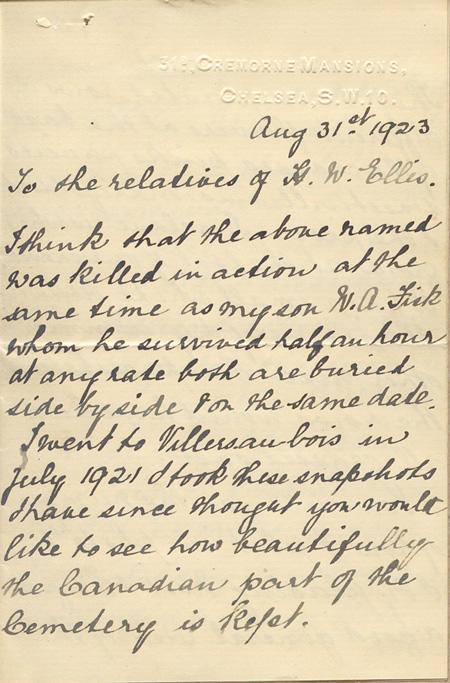 31a, CREMORNE MANSIONS,
CHELSEA, S.W.10.
Aug 31st 1923
To the relatives of H. W. Ellis.
I think that the above named
was killed in action at the
same time as my son W. A. Fisk
whom he survived half an hour
at any rate both are buried
side by side & on the same date.
I went to Villers au bois in
July 1921 & took these snapshots
& have since thought you would
like to see how beautifully
the Canadian part of the
Cemetery is kept.